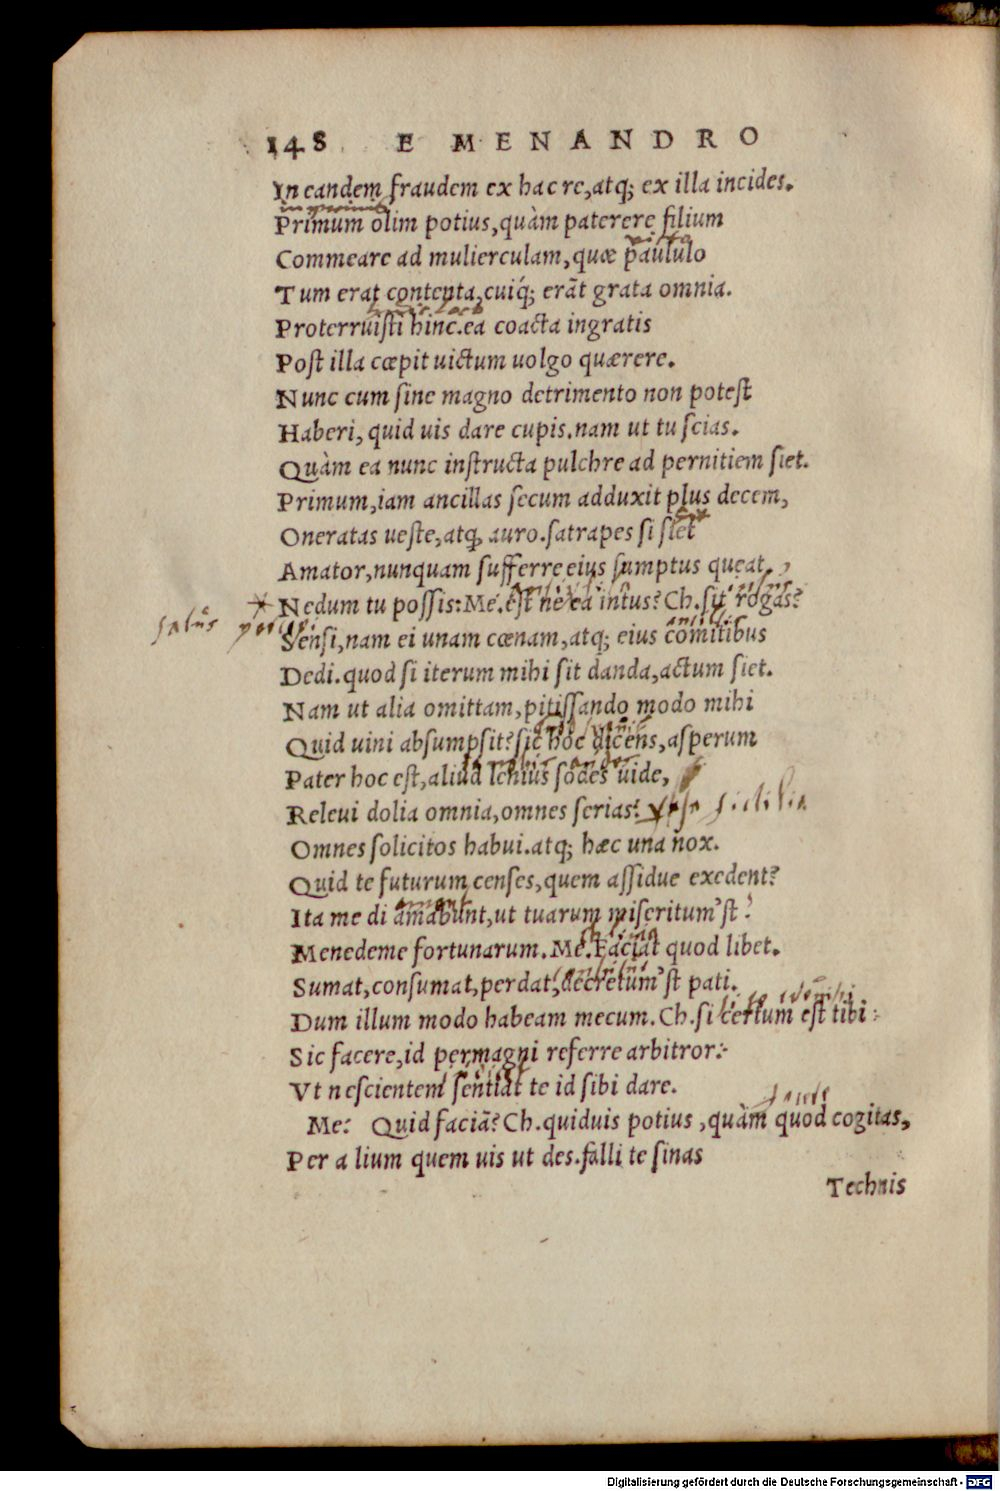 148 E MENANDRO
In eandem fraudem ex hac re,atq; ex illa incides.
Primum olim potius,quàm paterere filium
Commeare ad mulierculam,quæ paululo
Tum erat contenta,cuiq́; erãt grata omnia.
Proterruisti hinc.ea coacta ingratis
Post illa cœpit uictum uolgo quærere.
Nunc cum sine magno detrimento non potest
Haberi, quid uis dare cupis.nam ut tu scias.
Quàm ea nunc instructa pulchre ad pernitiem siet.
Primum,iam ancillas secum adduxit plus decem,
Oneratas ueste,atq; auro.satrapes si siet
Amator,nunquam sufferre eius sumptus queat.
Nedum tu possis:Me.est ne ea intus?Ch.sit rogas?
Sensi,nam ei unam cœnam,atq; eius comitibus
Dedi.quod si iterum mihi sit danda,actum siet.
Nam ut alia omittam,pitissando modo mihi
Quid uini absumpsit?sic hoc dicens,asperum
Pater hoc est,aliud lenius sodes uide,
Releui dolia omnia,omnes serias:
Omnes solicitos habui.atq; hæc una nox.
Quid te futurum censes,quem assidue exedent?
Ita me di amabunt,ut tuarum miseritum'st
Menedeme fortunarum.Me.Faciat quod libet.
Sumat,consumat,perdat,decretum'st pati.
Dum illum modo habeam mecum.Ch.si certum est tibi
Sic facere,id permagni referre arbitror:
Vt nescientem sentiat te id sibi dare.
Me: Quid faciã?Ch.quiduis potius,quàm quod cogitas,
Per a lium quem uis ut des.falli te sinas
Technis
Digitalisierung gefördert durch die Deutsche Forschungsgemeinschaft - DFG